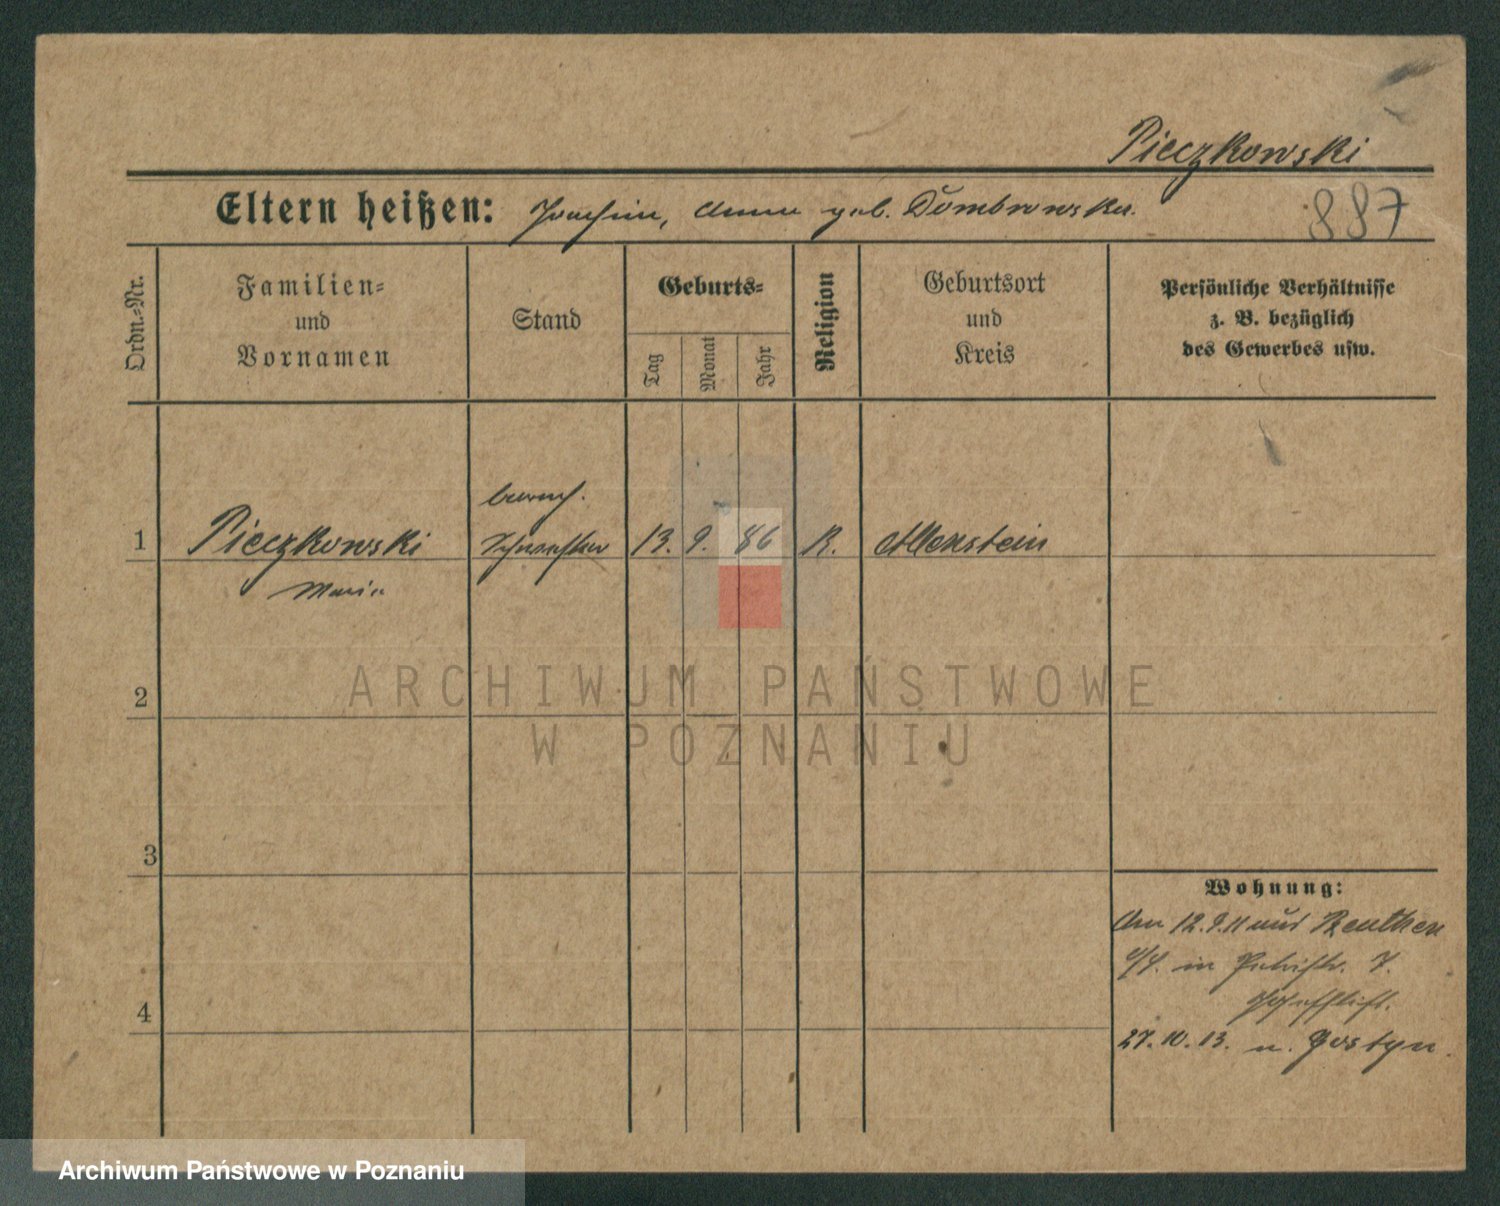 Pieczkowski
Eltern heißen: Joachim, Anna geb. Dombrowska.
887
Ordn.-Nr.
Familien-
und
Vornamen
Stand
Geburts-
Tag
Monat
Jahr
Religion
Geburtsort
und
Kreis
Persönliche Verhältnisse
z. B. bezüglich
des Gewerbes usw.
barmh.
1 Pieczkowski Schwester 13. 9. 86 K. Allenstein
Maria
ARCHIWUM PAŃSTWOWE
2
W POZNANIU
3
Wohnung:
Am 12.9.11 aus Beuthen
in Petristr. 7.
4
27.10.13. n. Gostyn.
Archiwum Państwowe w Poznaniu